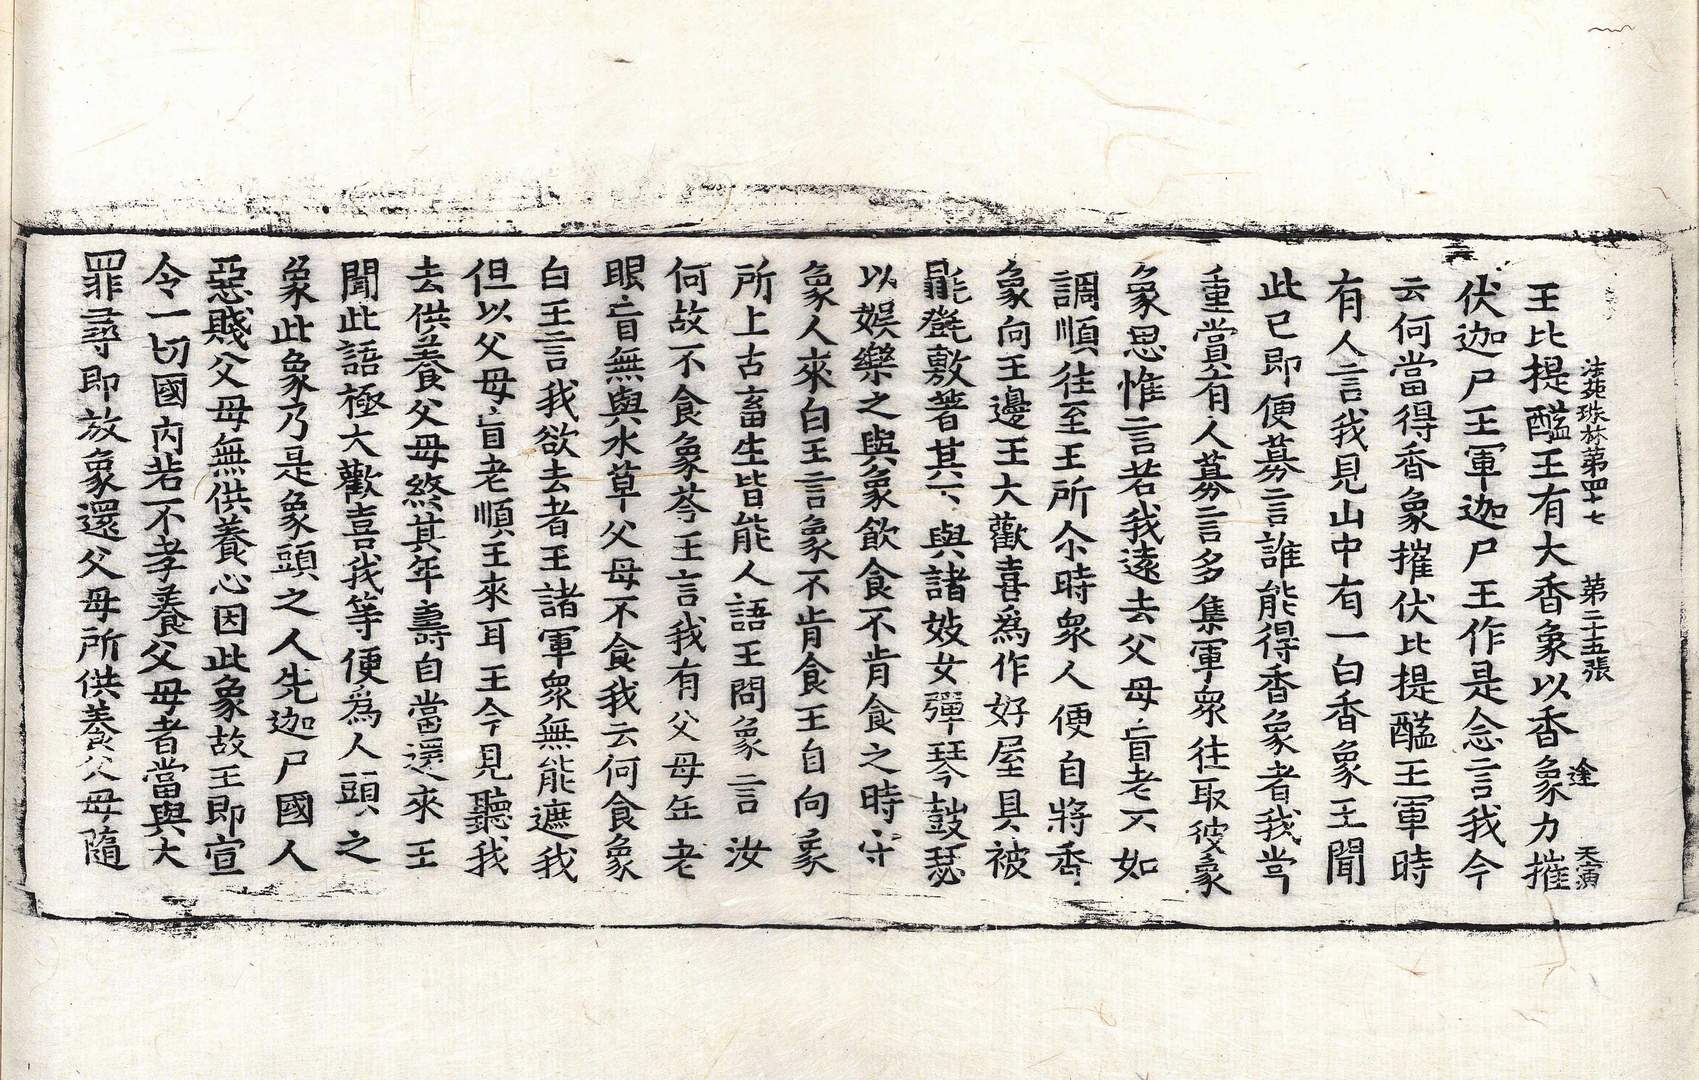 法苑珠林第四十七 第二十五張 途 天演
王比提醯王有大香象以香象力摧
伏迦尸王軍迦尸王作是念言我今
云何當得香象摧伏比提醯王軍時
有人言我見山中有一白香象王聞
此已即便募言誰能得香象者我當
重賞有人募言多集軍衆往取彼象
象思惟言若我遠去父母盲老不如
調順往至王所尒時衆人便自將香
象向王邊王大歡喜爲作好屋具被
毾㲪敷著其下與諸妓女彈琴鼓瑟
以娛樂之與象飲食不肯食之時守
象人來白王言象不肯食王自向象
所上古畜生皆能人語王問象言汝
何故不食象荅王言我有父母年老
眼盲無與水草父母不食我云何食象
白王言我欲去者王諸軍衆無能遮我
但以父母盲老順王來耳王今見聽我
去供養父母終其年壽自當還來王
聞此語極大歡喜我等便爲人頭之
象此象乃是象頭之人先迦尸國人
惡賤父母無供養心因此象故王即宣
令一切國內若不孝養父母者當與大
罪尋即放象還父母所供養父母隨